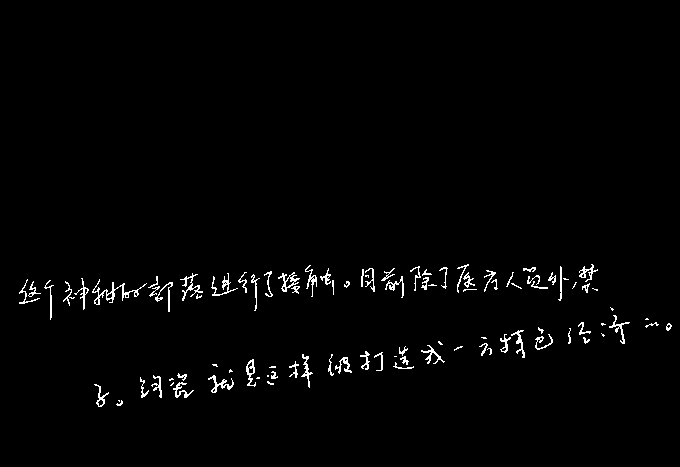 这个神秘的部落进行了接触。目前除了医疗人员外,禁
子。钧瓷就是这样被打造成一方特色经济的。